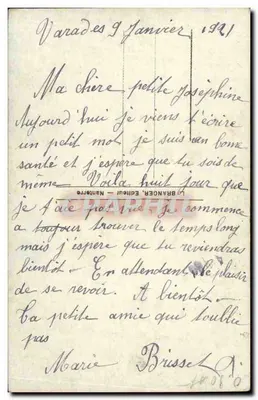 Varades 9 Janvier 1921
Ma chère petite Joséphine
Aujourd'hui je viens t'écrire
un petit mot je suis en bonne
santé et j'espère que tu sois de
même Voila huit jour que
je t'ai pas vue je commence
a toujour trouver le temps long
mais j'espère que tu reviendras
bientôt - En attendant le plaisir
de se revoir. A bientôt -
Ta petite amie qui t'oublie
pas
Marie Brisset
BRANGER, Editeur - Nanterre